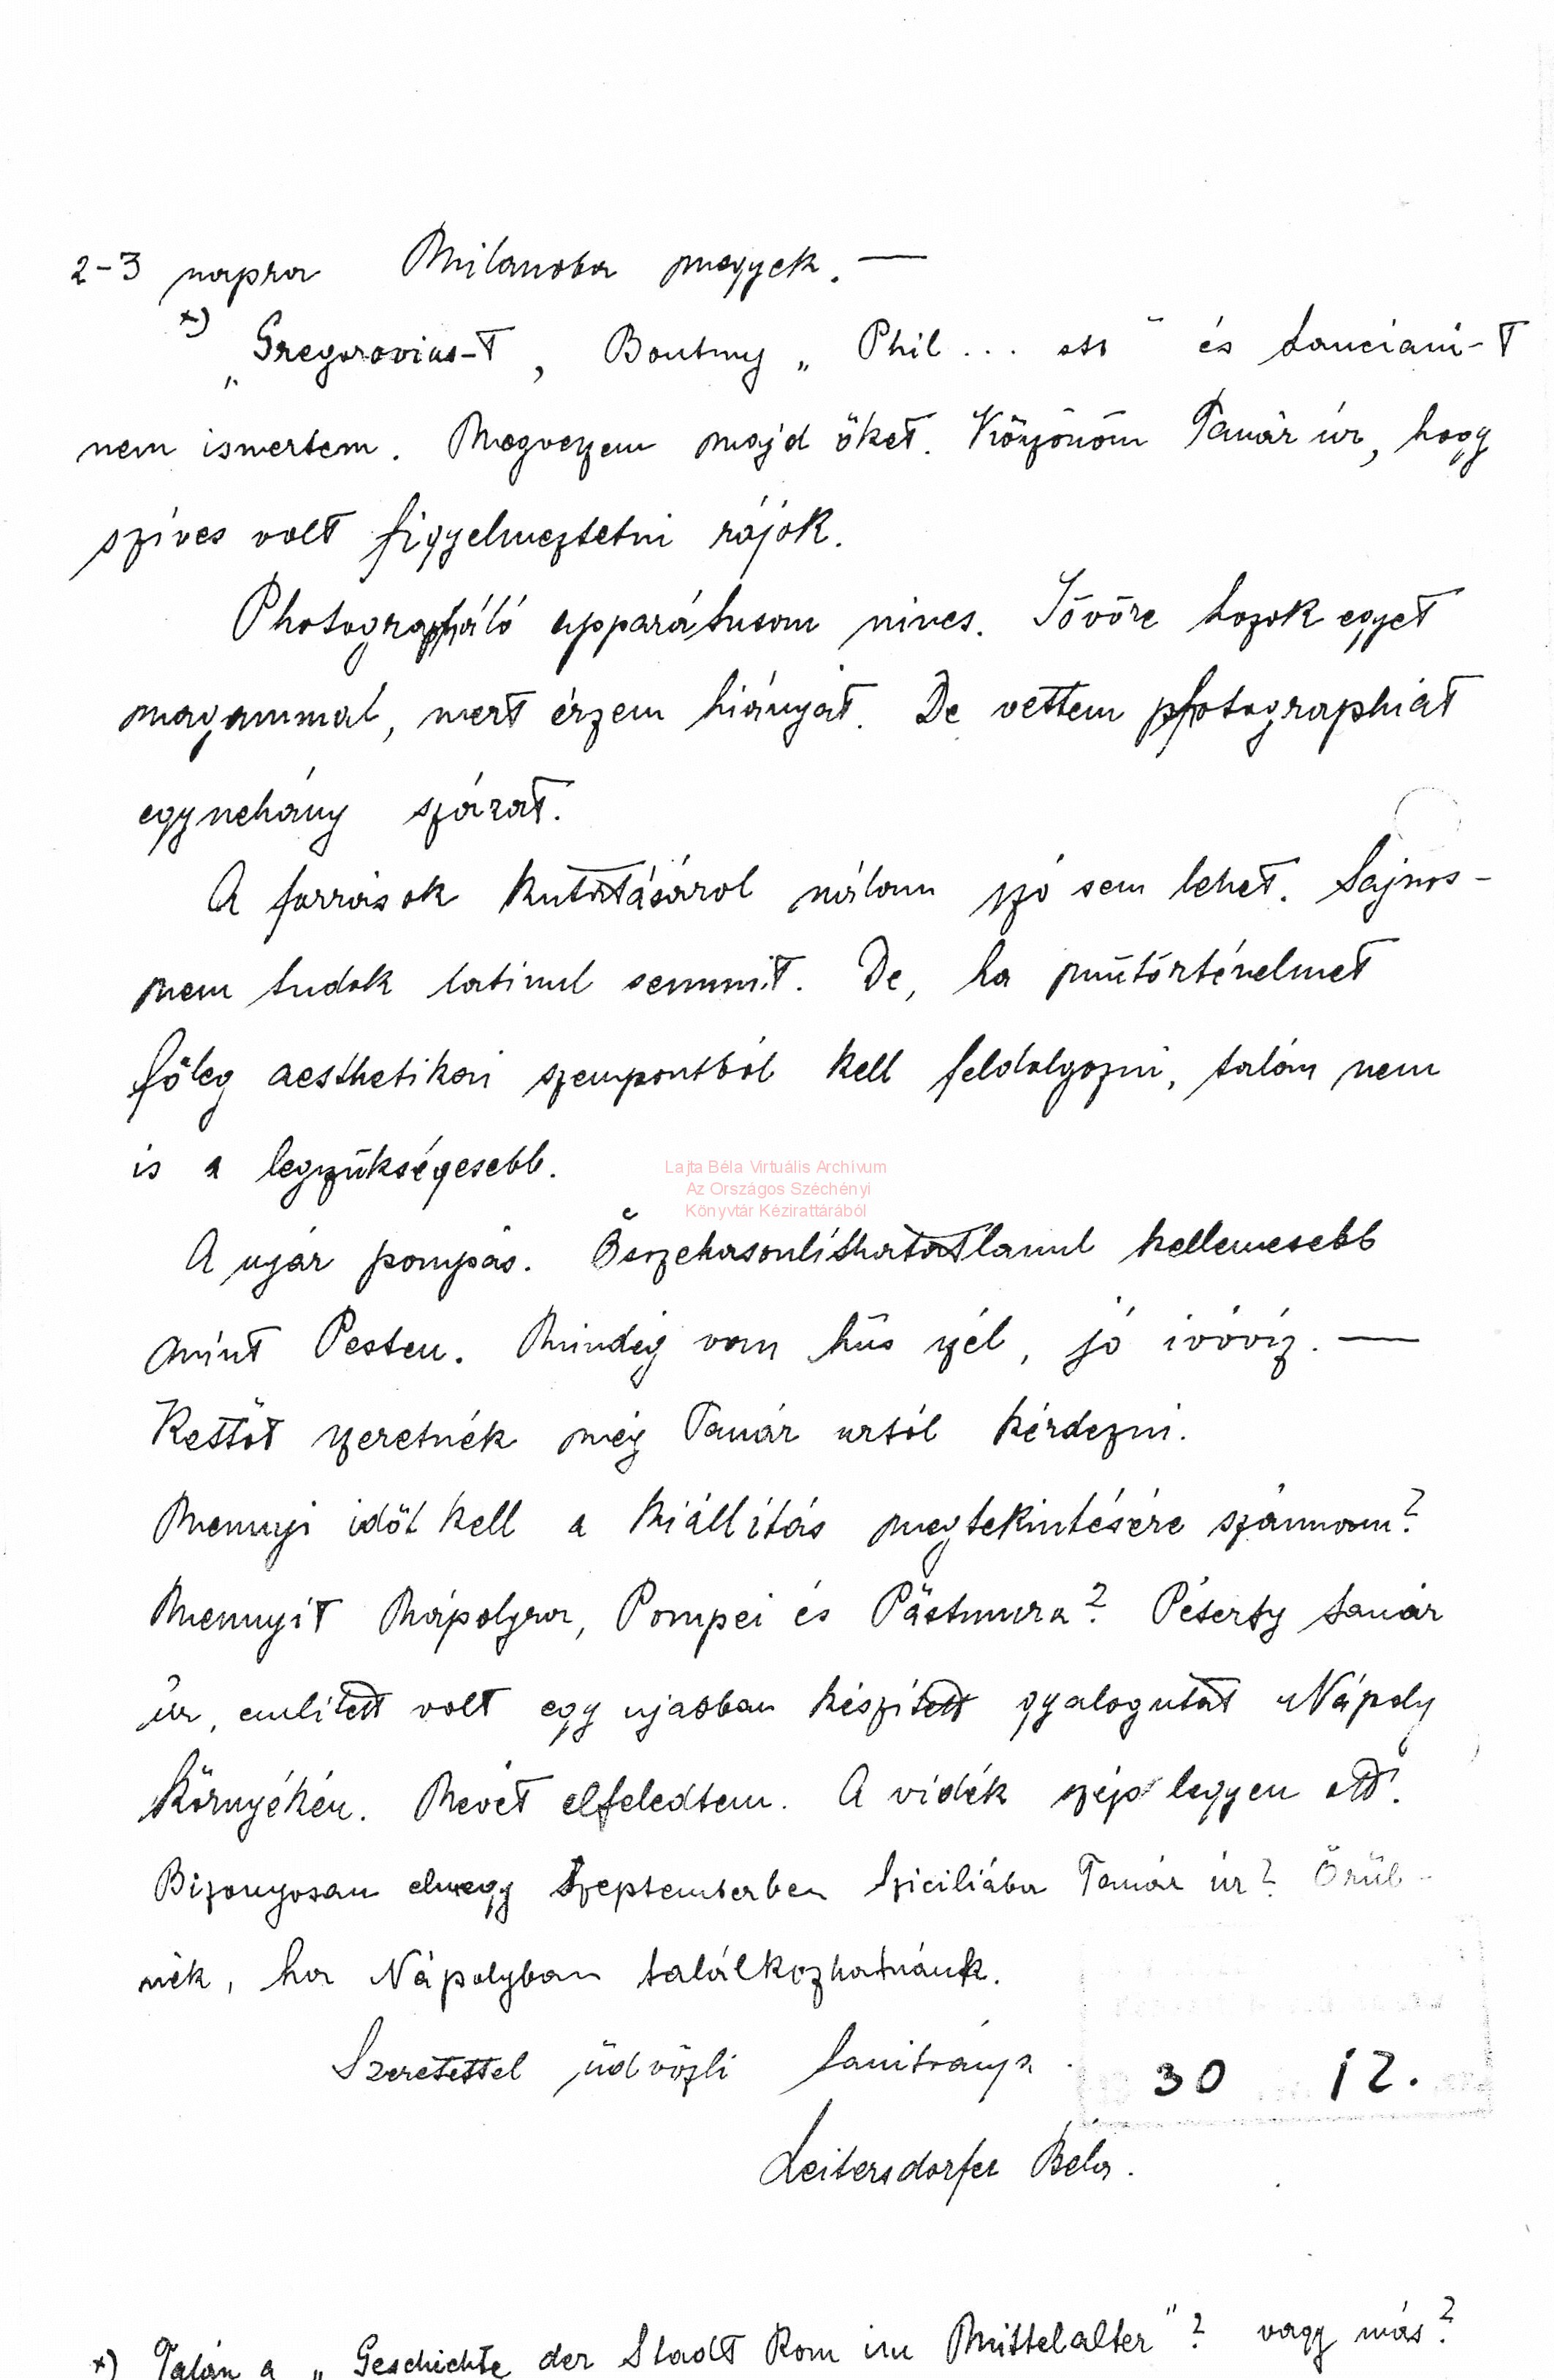 2-3 napra Milanoba megyek. —
x) „Gregorovius-t, Boutmy „Phil... ett" és Lanciani-t
nem ismertem. Megveszem majd őket. Köszönöm Tanár úr, hogy
szíves volt figyelmeztetni rájok.
Photographáló apparátusom nincs. Jövőre hozok egyet
magammal, mert érzem hiányát. De vettem photographiát
egynehány százat.
A források kutatásáról nálam szó sem lehet. Sajnos-
nem tudok latinul semmit. De, ha műtörténelmet
főleg aesthetikai szempontból kell feldolgozni, talán nem
is a legszükségesebb.
Lajta Béla Virtuális Archívum
Az Országos Széchényi
Könyvtár Kézirattárából
A nyár pompás. Összehasonlíthatatlanul kellemesebb
mint Pesten. Mindég van hűs szél, jó ivóvíz. —
Kettőt szeretnék még Tanár urtól kérdezni.
Mennyi időt kell a kiállítás megtekintésére szánnom?
Mennyit Nápolyra, Pompei és Pästumra? Péterfy tanár
úr, emlitett volt egy ujabban készített gyalogutat Nápoly
környékén. Nevét elfeledtem. A vidék szép legyen ott?
Bizonyosan elmegy Szeptemberben Sziciliába Tanár úr? Örül-
nék, ha Nápolyban találkozhatnánk.
Szeretettel üdvözli tanitványa
30 12.
Leitersdorfer Béla.
x) Talán a „Geschichte der Stadt Rom im Mittelalter"? vagy más?